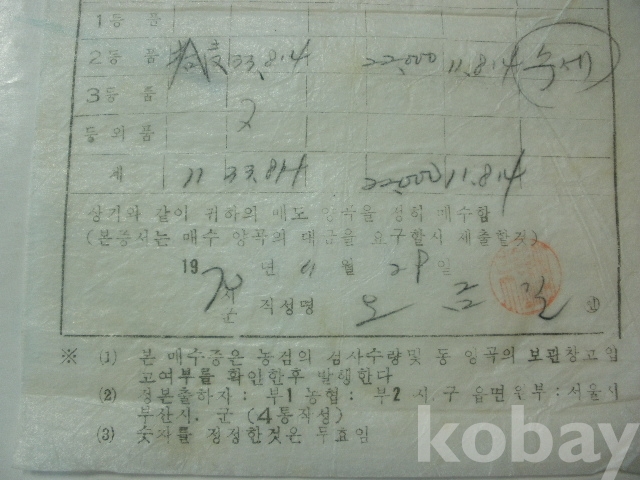 1등품
2등품 33,814 22,000 11,814
3등품
2
등외품
계 11 33,814 22,000 11,814
상기와 같이 귀하의 매도 양곡을 정히 매수함
(본증서는 매수 양곡의 대금을 요구할시 제출할것)
1970년 11월 29일
시
군 직성명 오 금
※ (1) 본 매수증은 농검의 검사수량및 동 양곡의 보관창고입
고여부를 확인한후 발행한다
(2) 정본출하자: 부1농협: 부2 시.구 읍면 부:서울시
부산시. 군 (4통작성)
(3) 숫자를 정정한것은 무효임
kobay